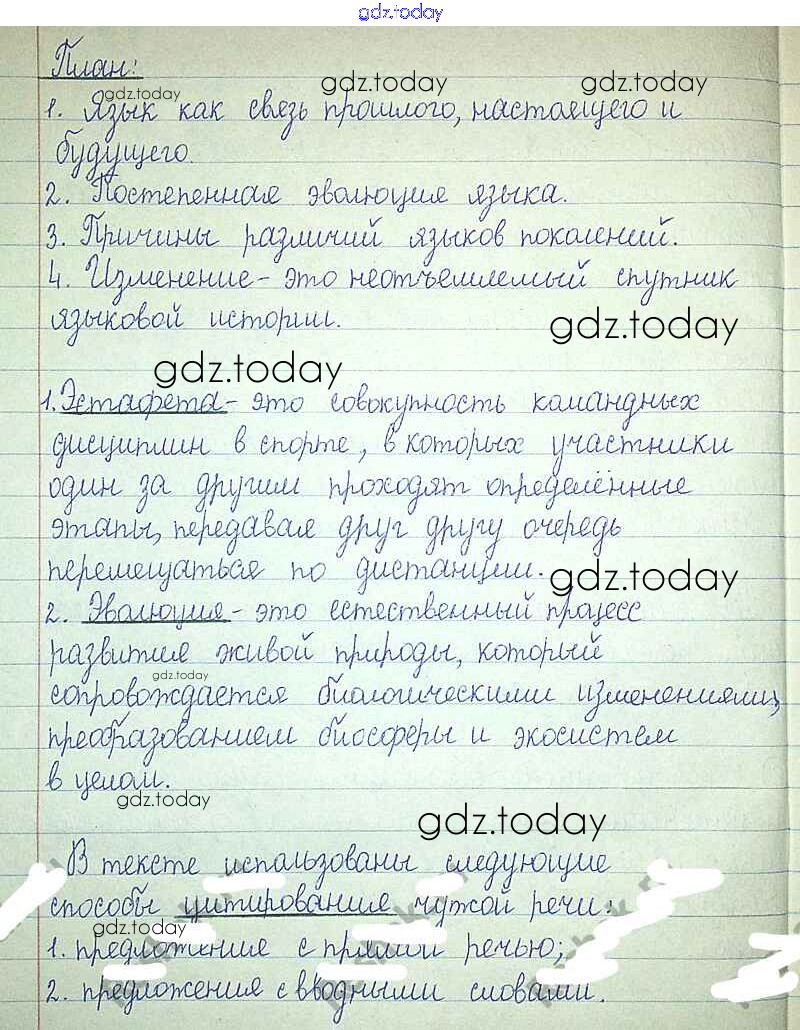 gdz.today
План:
gdz.today gdz.today gdz.today
1. Язык как связь прошлого, настоящего и
будущего.
2. Постепенная эволюция языка.
3. Причины различий языков поколений.
4. Изменение - это неотъемлемый спутник
языковой истории.
gdz.today
gdz.today
1. Эстафета - это совокупность командных
дисциплин в спорте, в которых участники
один за другим проходят определённые
этапы, передавая друг другу очередь
перемещаться по дистанции.
gdz.today
2. Эволюция - это естественный процесс
развития живой природы, который
gdz.today
сопровождается биологическими изменениями,
преобразованием биосферы и экосистем
в целом.
gdz.today
gdz.today
В тексте использованы следующие
способы цитирования чужой речи:
gdz.today
1. предложение с прямой речью;
2. предложения с вводными словами.